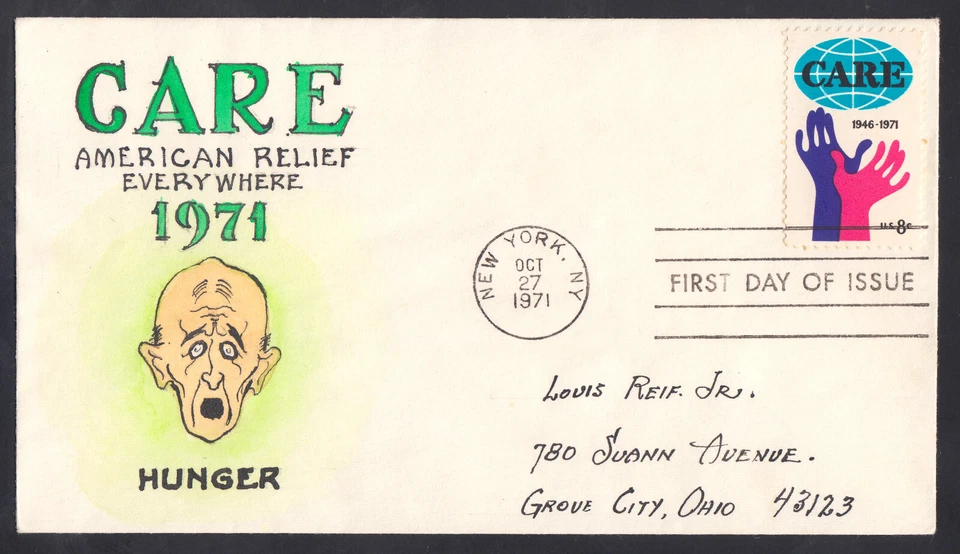 CARE
AMERICAN RELIEF
EVERYWHERE
1971
HUNGER
CARE
1946-1971
U.S. 8c
NEW YORK, NY
OCT
27
1971
FIRST DAY OF ISSUE
LOUIS REIF. JR.
780 SUANN AVENUE.
GROVE CITY, OHIO 43123